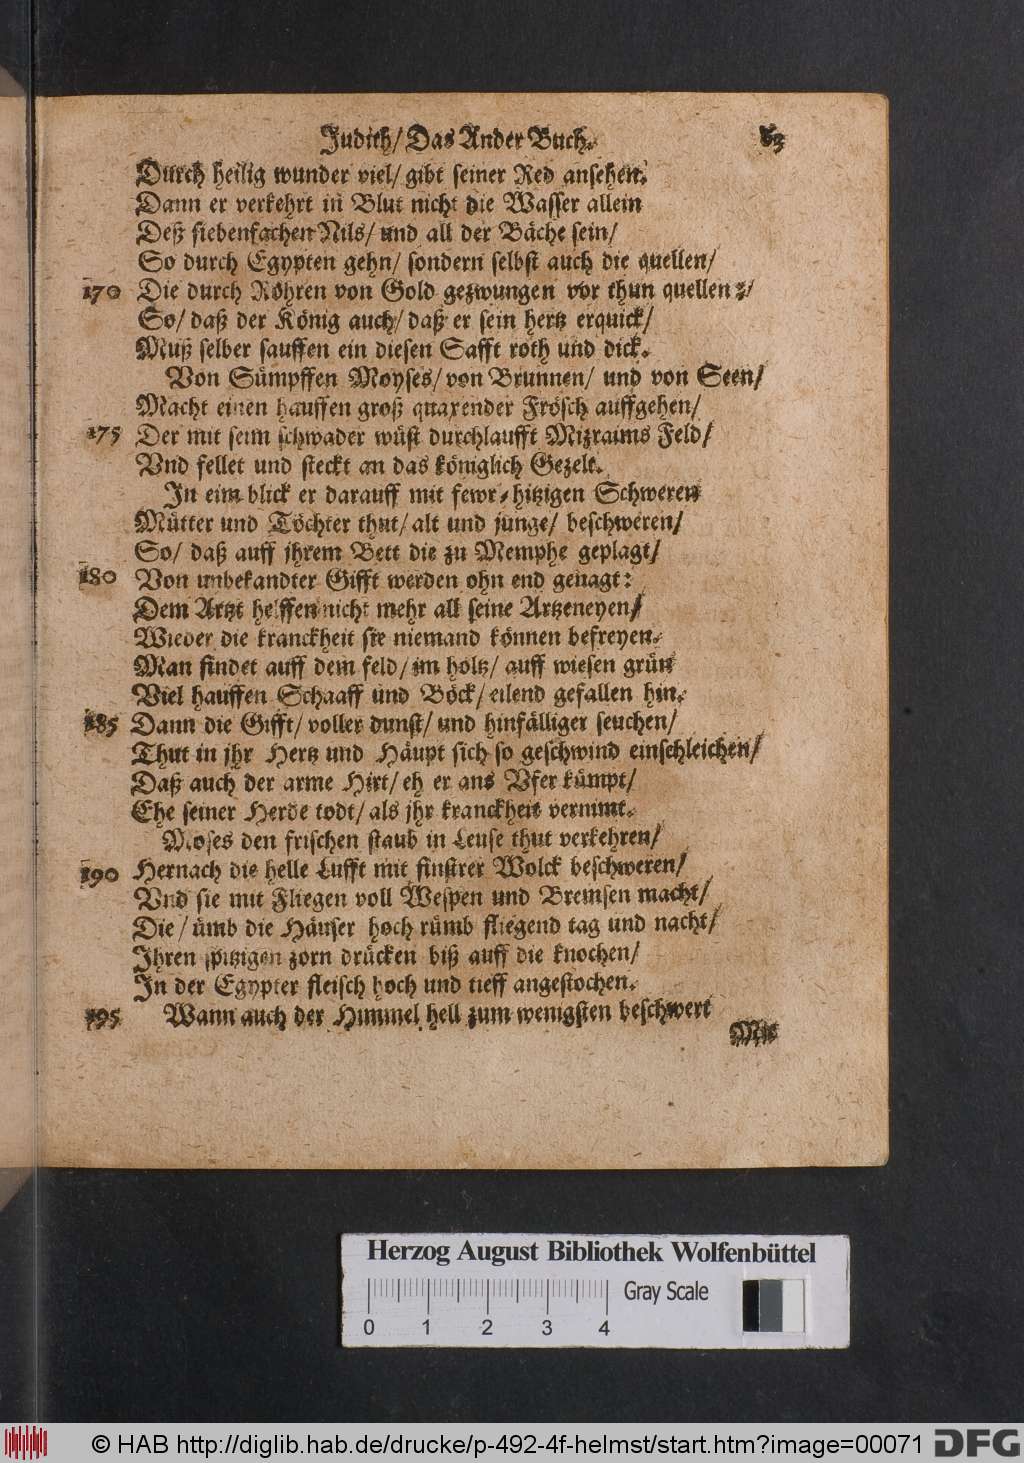 Judith/ Das Ander Buch. 63
Durch heilig wunder viel/ gibt seiner Red ansehen.
Dann er verkehrt in Blut nicht die Wasser allein
Deß siebenfachen Nils/ und all der Bäche sein/
So durch Egypten gehn/ sondern selbst auch die quellen/
170 Die durch Röhren von Gold gezwungen vor thun quellen:/
So/ daß der König auch/ daß er sein hertz erquick/
Muß selber sauffen ein diesen Safft roth und dick.
Von Sümpffen Moyses/ von Brunnen/ und von Seen/
Macht einen hauffen groß quaxender Frösch auffgehen/
175 Der mit seim schwader wüst durchlaufft Mizraims Feld/
Vnd fellet und steckt an das königlich Gezelt.
In eim blick er darauff mit fewr-hitzigen Schweren
Mütter und Töchter thut/ alt und junge/ beschweren/
So/ daß auff jhrem Bett die zu Memphe geplagt/
180 Von unbekandter Gifft werden ohn end genagt:
Dem Artzt helffen nicht mehr all seine Artzeneyen/
Wieder die kranckheit sie niemand können befreyen.
Man findet auff dem feld/ im holtz/ auff wiesen grün
Viel hauffen Schaaff und Böck/ eilend gefallen hin.
185 Dann die Gifft/ voller dunst/ und hinfälliger seuchen/
Thut in jhr Hertz und Häupt sich so geschwind einschleichen/
Daß auch der arme Hirt/ eh er ans Vfer kümpt/
Ehe seiner Herde todt/ als jhr kranckheit vernimt.
Moses den frischen staub in Leuse thut verkehren/
190 Hernach die helle Lufft mit finstrer Wolck beschweren/
Vnd sie mit Fliegen voll Wespen und Bremsen macht/
Die/ ümb die Häuser hoch rümb fliegend tag und nacht/
Ihren spitzigen zorn drücken biß auff die knochen/
In der Egypter fleisch hoch und tieff angestochen.
195 Wann auch der Himmel hell zum wenigsten beschwert
Mit
Herzog August Bibliothek Wolfenbüttel
Gray Scale
0 1 2 3 4
© HAB http://diglib.hab.de/drucke/p-492-4f-helmst/start.htm?image=00071 DFG